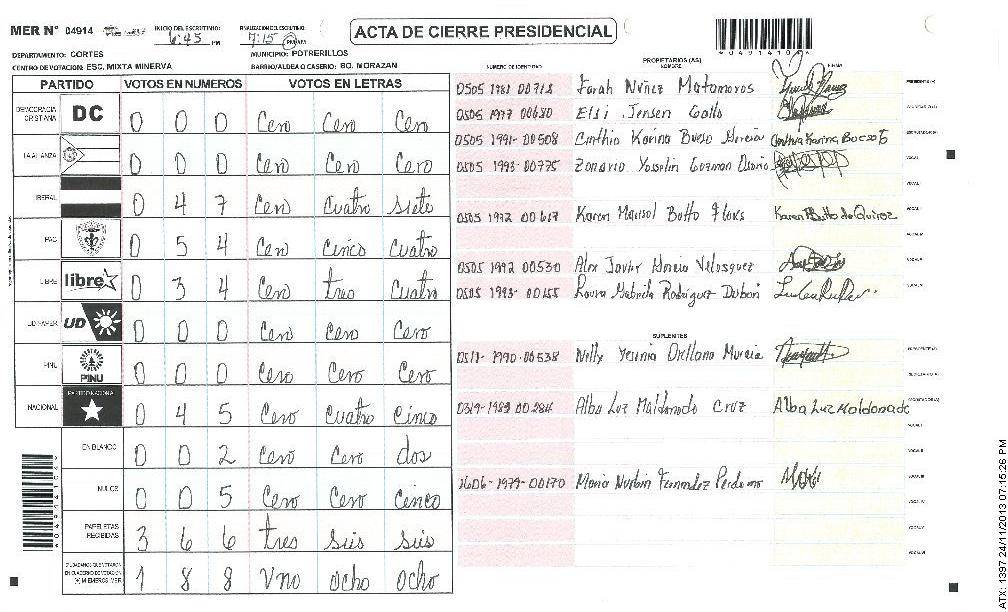 MER Nº 04914 INICIO DEL ESCRUTINIO: 6:45 PM FINALIZACION DEL ESCRUTINIO: 7:15 PM AM ACTA DE CIERRE PRESIDENCIAL
04914102
DEPARTAMENTO: CORTES MUNICIPIO: POTRERILLOS
CENTRO DE VOTACION: ESC. MIXTA MINERVA BARRIO/ALDEA O CASERIO: BO. MORAZAN
PARTIDO VOTOS EN NUMEROS VOTOS EN LETRAS
DEMOCRACIA CRISTIANA DC 0 0 0 Cero Cero Cero
LA ALIANZA 0 0 0 Cero Cero Cero
LIBERAL 0 4 7 Cero Cuatro Siete
PAC 0 5 4 Cero Cinco Cuatro
LIBRE libre 0 3 4 Cero tres Cuatro
UD-FAPER UD 0 0 0 Cero Cero Cero
PINU PINU 0 0 0 Cero Cero Cero
NACIONAL PARTIDO NACIONAL 0 4 5 Cero Cuatro Cinco
EN BLANCO 0 0 2 Cero Cero dos
NULOS 0 0 5 Cero Cero Cinco
PAPELETAS RECIBIDAS 3 6 6 tres seis seis
CIUDADANOS QUE VOTARON EN CUADERNO DE VOTACION (+) MIEMBROS MER 1 8 8 Uno ocho ocho
NUMERO DE IDENTIDAD PROPIETARIOS (AS) NOMBRE FIRMA
0505 1981 00718 Farah Nuñez Matamoros
0505 1977 00680 Elsi Jensen Gallo
0505 1991- 00508 Cinthia Karina Bueso Garcia Cinthia Karina Bueso G
0505 1993- 00775 Yosselin Guzman Osorio
0505 1992 00617 Karen Marisol Botto Flores Karen Botto de Quiroz
0505 1992 00530 Alex Javier Garcia Velasquez
0505 1993- 00155 Laura Gabriela Rodriguez Dubon
SUPLENTES
0511- 1990-00538 Nelly Yesenia Orellana Murcia
0319-1983 00284 Alba Luz Maldonado Cruz Alba Luz Maldonado
1606-1979-00170 Maria Fernandez Perdomo
ATX: 1397 24/11/2013 07:15:26 PM